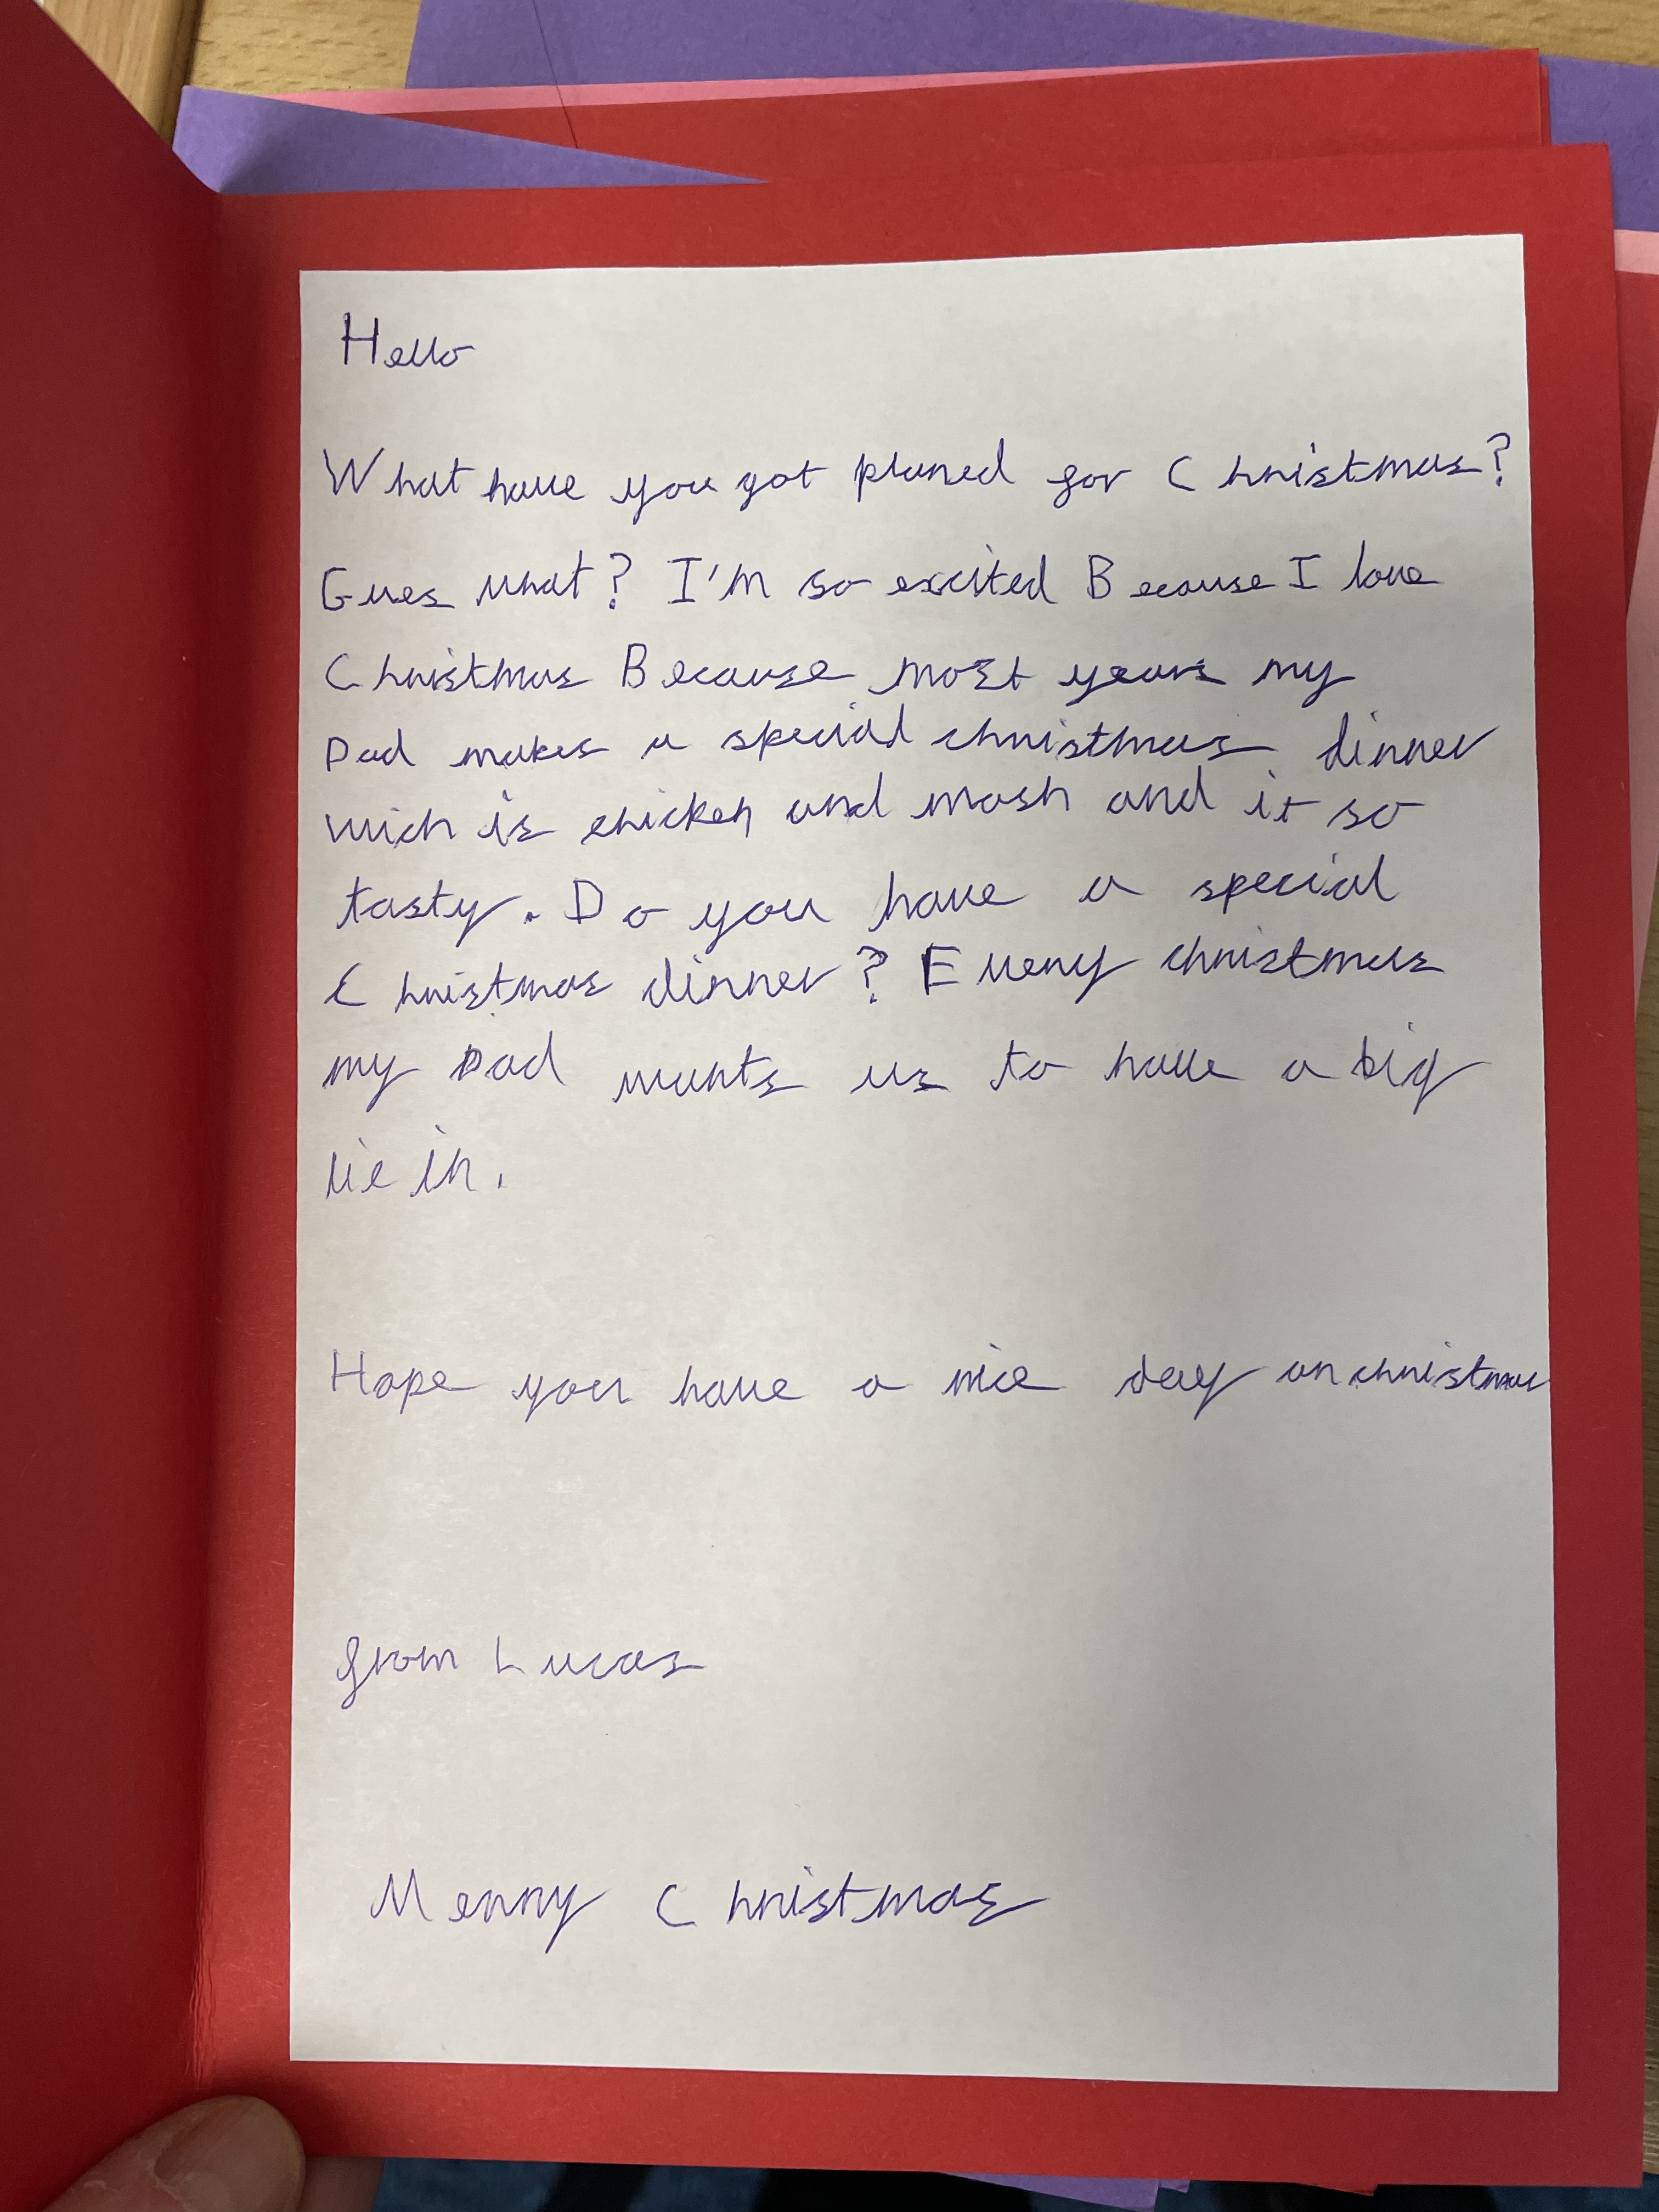 Hello
What have you got planed for Christmas?
Gues what? I'm so excited Because I love
Christmas Because most years my
Dad makes a special christmas dinner
wich is chicken and mash and it so
tasty. Do you have a special
Christmas dinner? Every christmas
my Dad wants us to have a big
lie in.
Hope you have a nice day on christmas
from Lucas
Merry Christmas